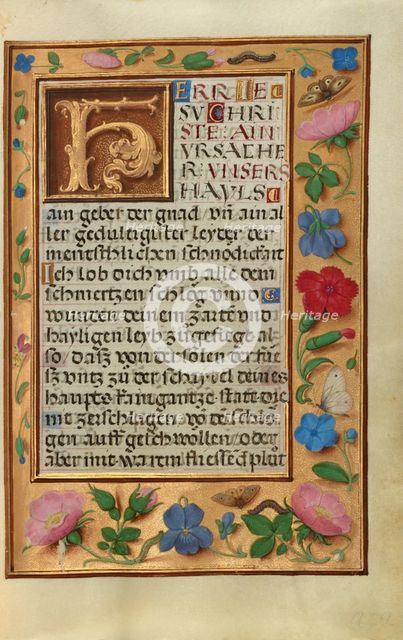 HERR IE
SV CHRI
STE AIN
VRSACHE
R VNSERS
HAYLS
ain geber der gnad vn̄ ain al
ler geduͤltigister leyder der
mentschlichen schnödickait
Ich lob dich vmb alle dein
schmertzen schlög vnnd
wunden deinem zarten vnd
hayligen leyb zugefiegt al
so / daß von der solen der füe
ß vntz zu der schaytel deines
haupts kain gantze statt die
nit zerschlagen von den schle
gen auff geschwollen / oder
aber mit warem fliessēd plůt
Heritage Images